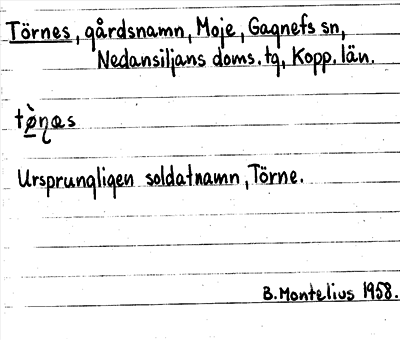 Törnes, gårdsnamn, Moje, Gagnefs sn,
Nedansiljans doms. tg, Kopp. län.
tø̀ɳæs
Ursprungligen soldatnamn, Törne.
B. Montelius 1958.